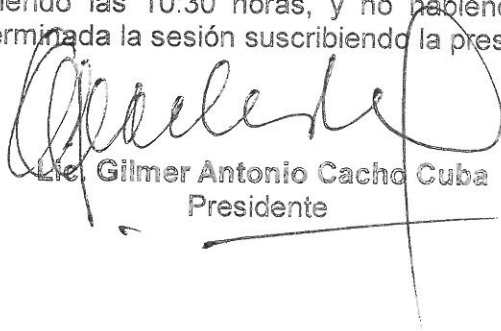 iendo las 10:30 horas, y no habiend
erminada la sesión suscribiendo la pres
Lic. Gilmer Antonio Cacho Cuba
Presidente